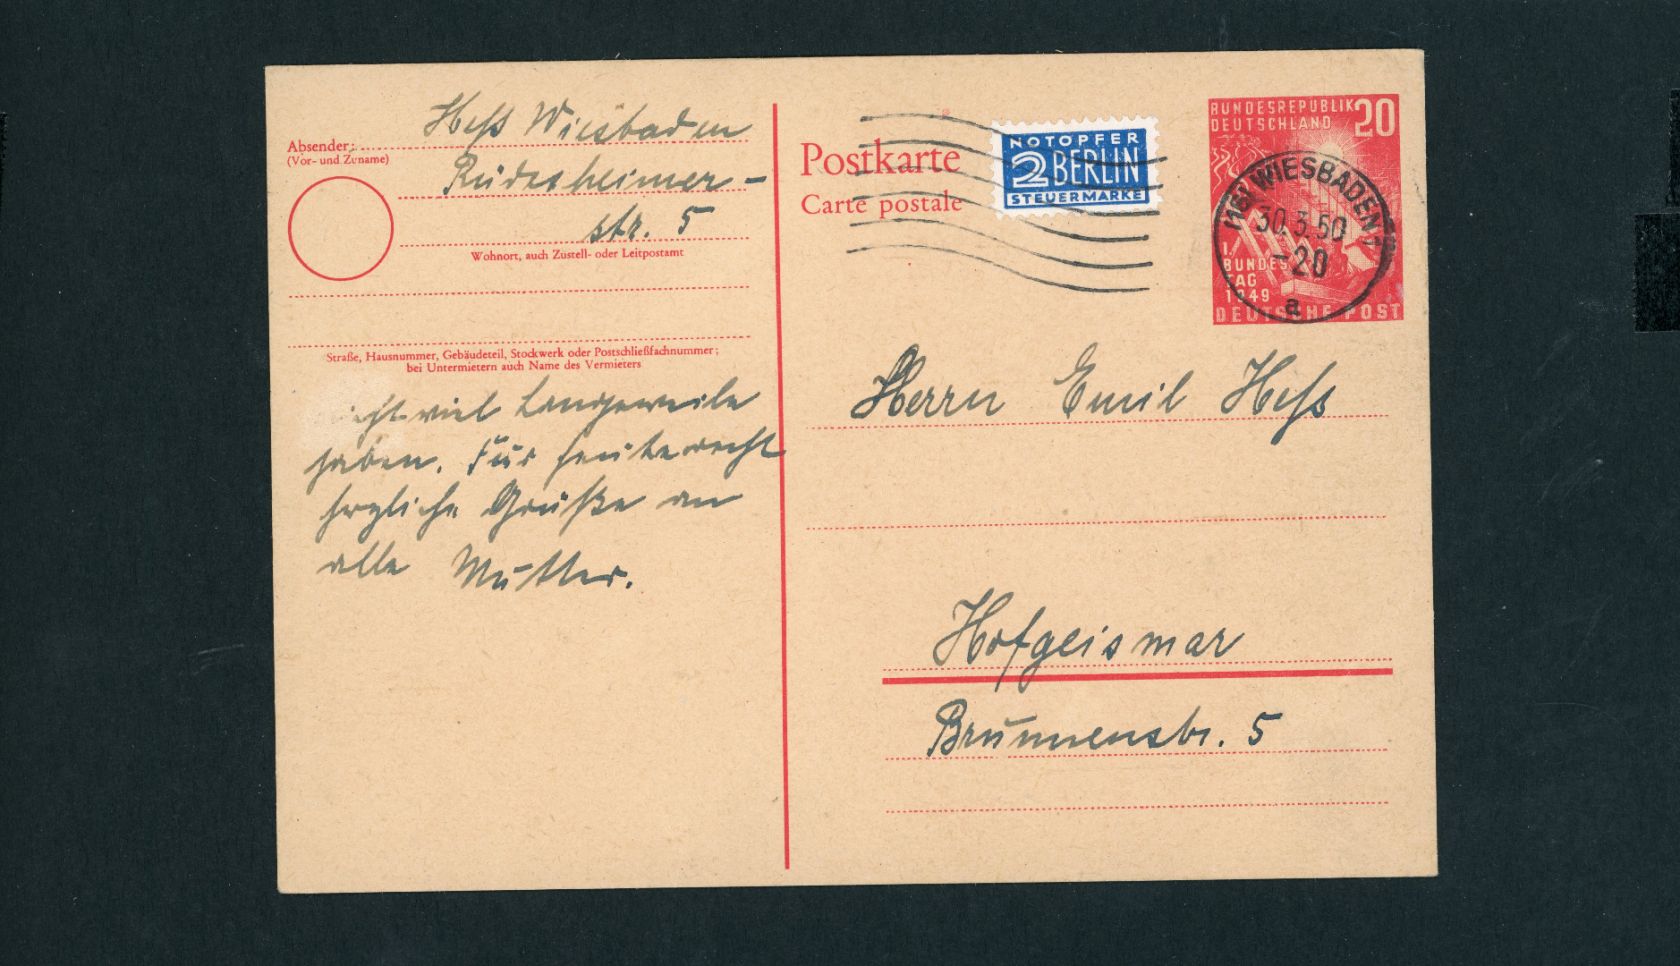 Absender:
(Vor- und Zuname)
Heß Wiesbaden
Rüdesheimer-
str. 5
Wohnort, auch Zustell- oder Leitpostamt
Straße, Hausnummer, Gebäudeteil, Stockwerk oder Postschließfachnummer;
bei Untermietern auch Name des Vermieters
viel Langeweile
haben. Für heute recht
herzliche Grüße an
alle Mutter.
Postkarte
Carte postale
NOTOPFER
2 BERLIN
STEUERMARKE
BUNDESREPUBLIK 20
DEUTSCHLAND
I.
BUNDES
TAG
1949
DEUTSCHE POST
WIESBADEN 1
30.3.50
-20
a
Herrn Emil Heß
Hofgeismar
Brunnenstr. 5